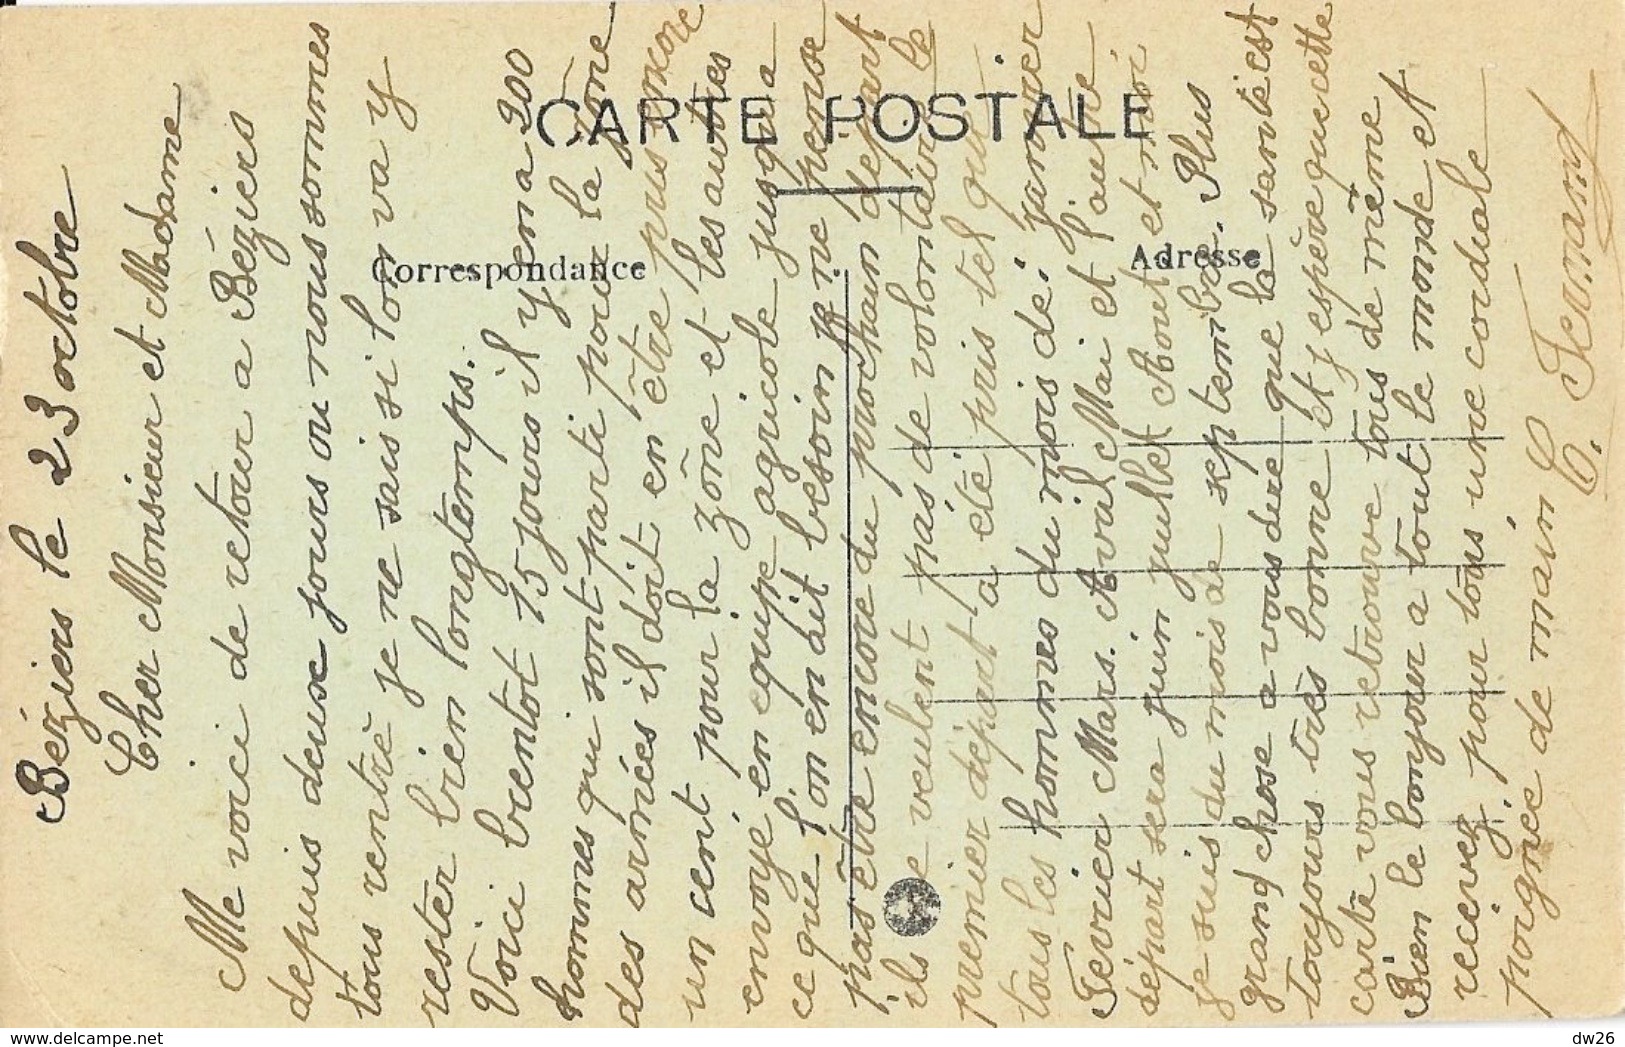 CARTE POSTALE
Correspondance
Adresse
Béziers le 23 octobre
Cher Monsieur et Madame
Me voici de retour a Béziers
depuis deux jours ou nous sommes
tous rentrè je ne sais si lon va y
rester bien longtemps.
Voici bientot 15 jours il y en a 300
hommes qui sont parti pour la zône
des armées il doit en être pris encore
un cent pour la zône et les autres
envoyé en equipe agricole jusqu'a
ce que l'on en ait besoin je ne pense
pas être encore du prochain depart
ils ne veulent pas de volontaire le
premier départ a été pris tel que
tous les hommes du mois de: janvier
Fevrier Mars. Avril Mai et l'autre
départ sera juin juillet Aout et moi
je suis du mois de septembre. Plus
grand chose a vous dire que la santé est
toujours très bonne et j'espère que cette
carte vous retrouve tous de même
Bien le bonjour a tout le monde et
recevez pour tous une cordiale
poignée de main C. Fernand
https://www.delcampe.net
dw26